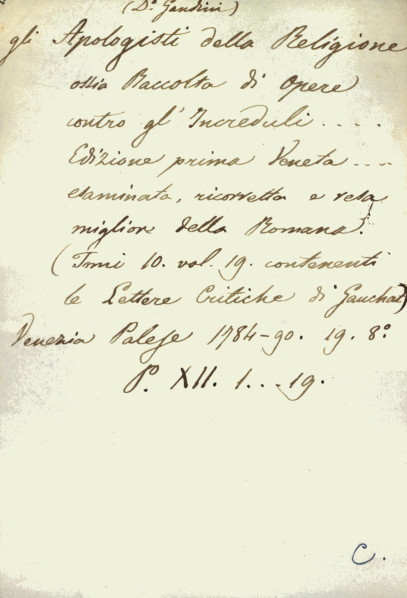 (D.º Gandini)
gli Apologisti della Religione
ossia Raccolta di opere
contro gl' Increduli .....
Edizione prima Veneta ....
esaminata, ricorretta e resa
migliore della Romana.
(Tomi 10. vol. 19. contenenti
le Lettere Critiche di Gauchat)
Venezia Palese 1784-90. 19. 8.º
P.º XII. 1...19.
C.